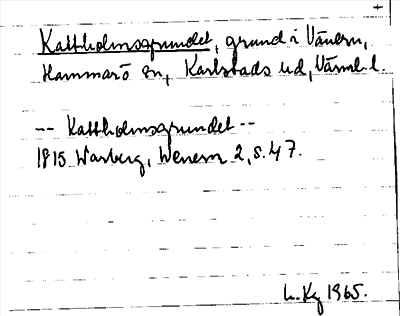 Kattholmsgrundet, grund i Vänern,
Hammarö sn, Karlstads hd, Värml. l.
-- Kattholmsgrundet --
1815 Warberg, Wenern 2, s. 47.
1965.